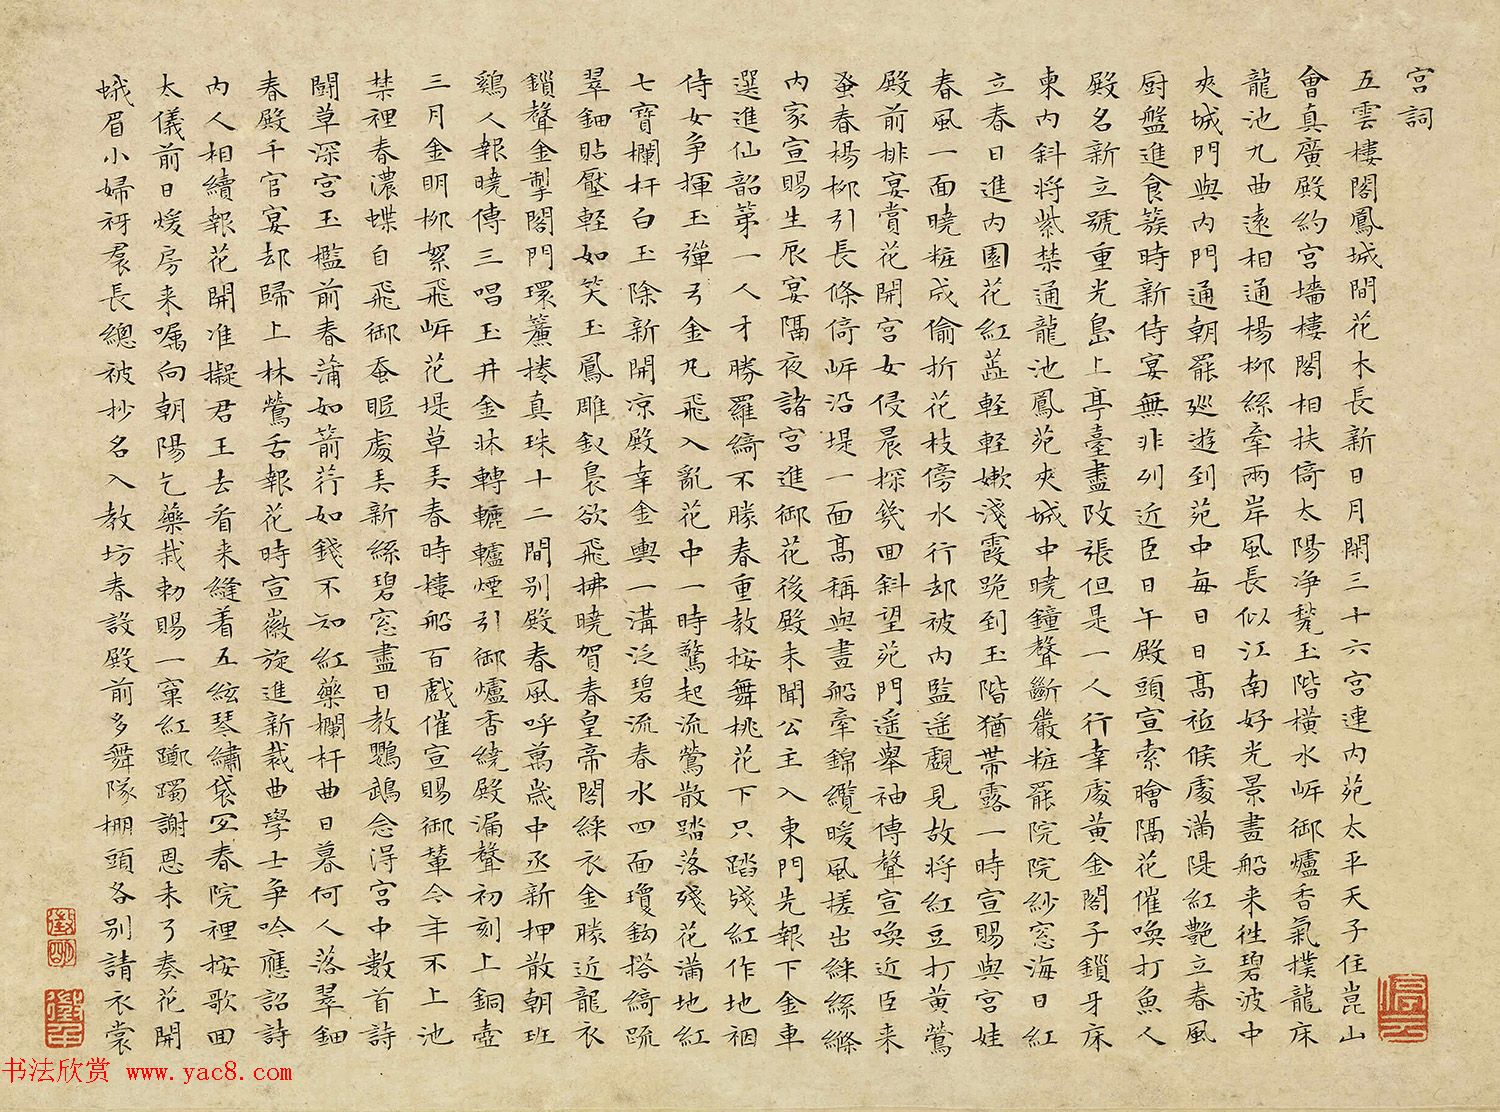 宮詞
五雲樓閣鳳城間花木長新日月閑三十六宮連內苑太平天子住崑山
會真廣殿約宮墻樓閣相扶倚太陽净甃玉階橫水岼御爐香氣撲龍床
龍池九曲遠相通楊柳絲牽兩岸風長似江南好光景畫船来往碧波中
夾城門與內門通朝罷廵遊到苑中每日日高祗候處滿隄紅艷立春風
厨盤進食簇時新侍宴無非列近臣日午殿頭宣索鱠隔花催喚打魚人
殿名新立號重光島上亭臺盡改張但是一人行幸處黃金閣子鎖牙床
東內斜将紫禁通龍池鳳苑夾城中曉鐘聲斷嚴粧罷院院紗窓海日紅
立春日進內園花紅蕋輕輕嫩淺霞跪到玉階猶帶露一時宣賜與宮娃
春風一面曉粧成偷折花枝傍水行却被內監遥覷見故将紅豆打黃鶯
殿前排宴賞花開宮女侵晨探幾回斜望苑門遥舉袖傳聲宣喚近臣来
蚤春楊柳引長條倚岼沿堤一面高稱與畫船牽錦纜暖風搓出綵絲縧
內家宣賜生辰宴隔夜諸宮進御花後殿未聞公主入東門先報下金車
選進仙韶第一人才勝羅綺不勝春重教按舞桃花下只踏殘紅作地裀
侍女争揮玉彈弓金丸飛入亂花中一時驚起流鶯散踏落殘花滿地紅
七寶欄杆白玉除新開凉殿幸金輿一溝泛碧流春水四面瓊鈎搭綺疏
翠鈿貼壓輕如笑玉鳳雕釵裊欲飛拂曉賀春皇帝閣綵衣金勝近龍衣
鎖聲金掣閣門環簾捲真珠十二間别殿春風呼萬歲中丞新押散朝班
鷄人報曉傳三唱玉井金牀轉轆轤煙引御爐香繞殿漏聲初刻上銅壺
三月金明柳絮飛岼花堤草美春時樓船百戲催宣賜御輦今年不上池
禁裡春濃蝶自飛御蚕眠處美新絲碧窓盡日教鸚鵡念得宮中數首詩
鬪草深宮玉檻前春蒲如箭荇如錢不知紅藥欄杆曲日暮何人落翠鈿
春殿千官宴却歸上林鶯舌報花時宣徽旋進新裁曲學士争吟應詔詩
內人相續報花開准擬君王去看来縫着五絃琴繡袋宜春院裡按歌回
太儀前日煖房来囑向朝陽乞藥栽勅賜一窠紅躑躅謝恩未了奏花開
蛾眉小婦初裙長總被抄名入教坊春設殿前多舞隊棚頭各别請衣裳
徵
明
徵
仲
停
雲
书法欣赏 www.yac8.com